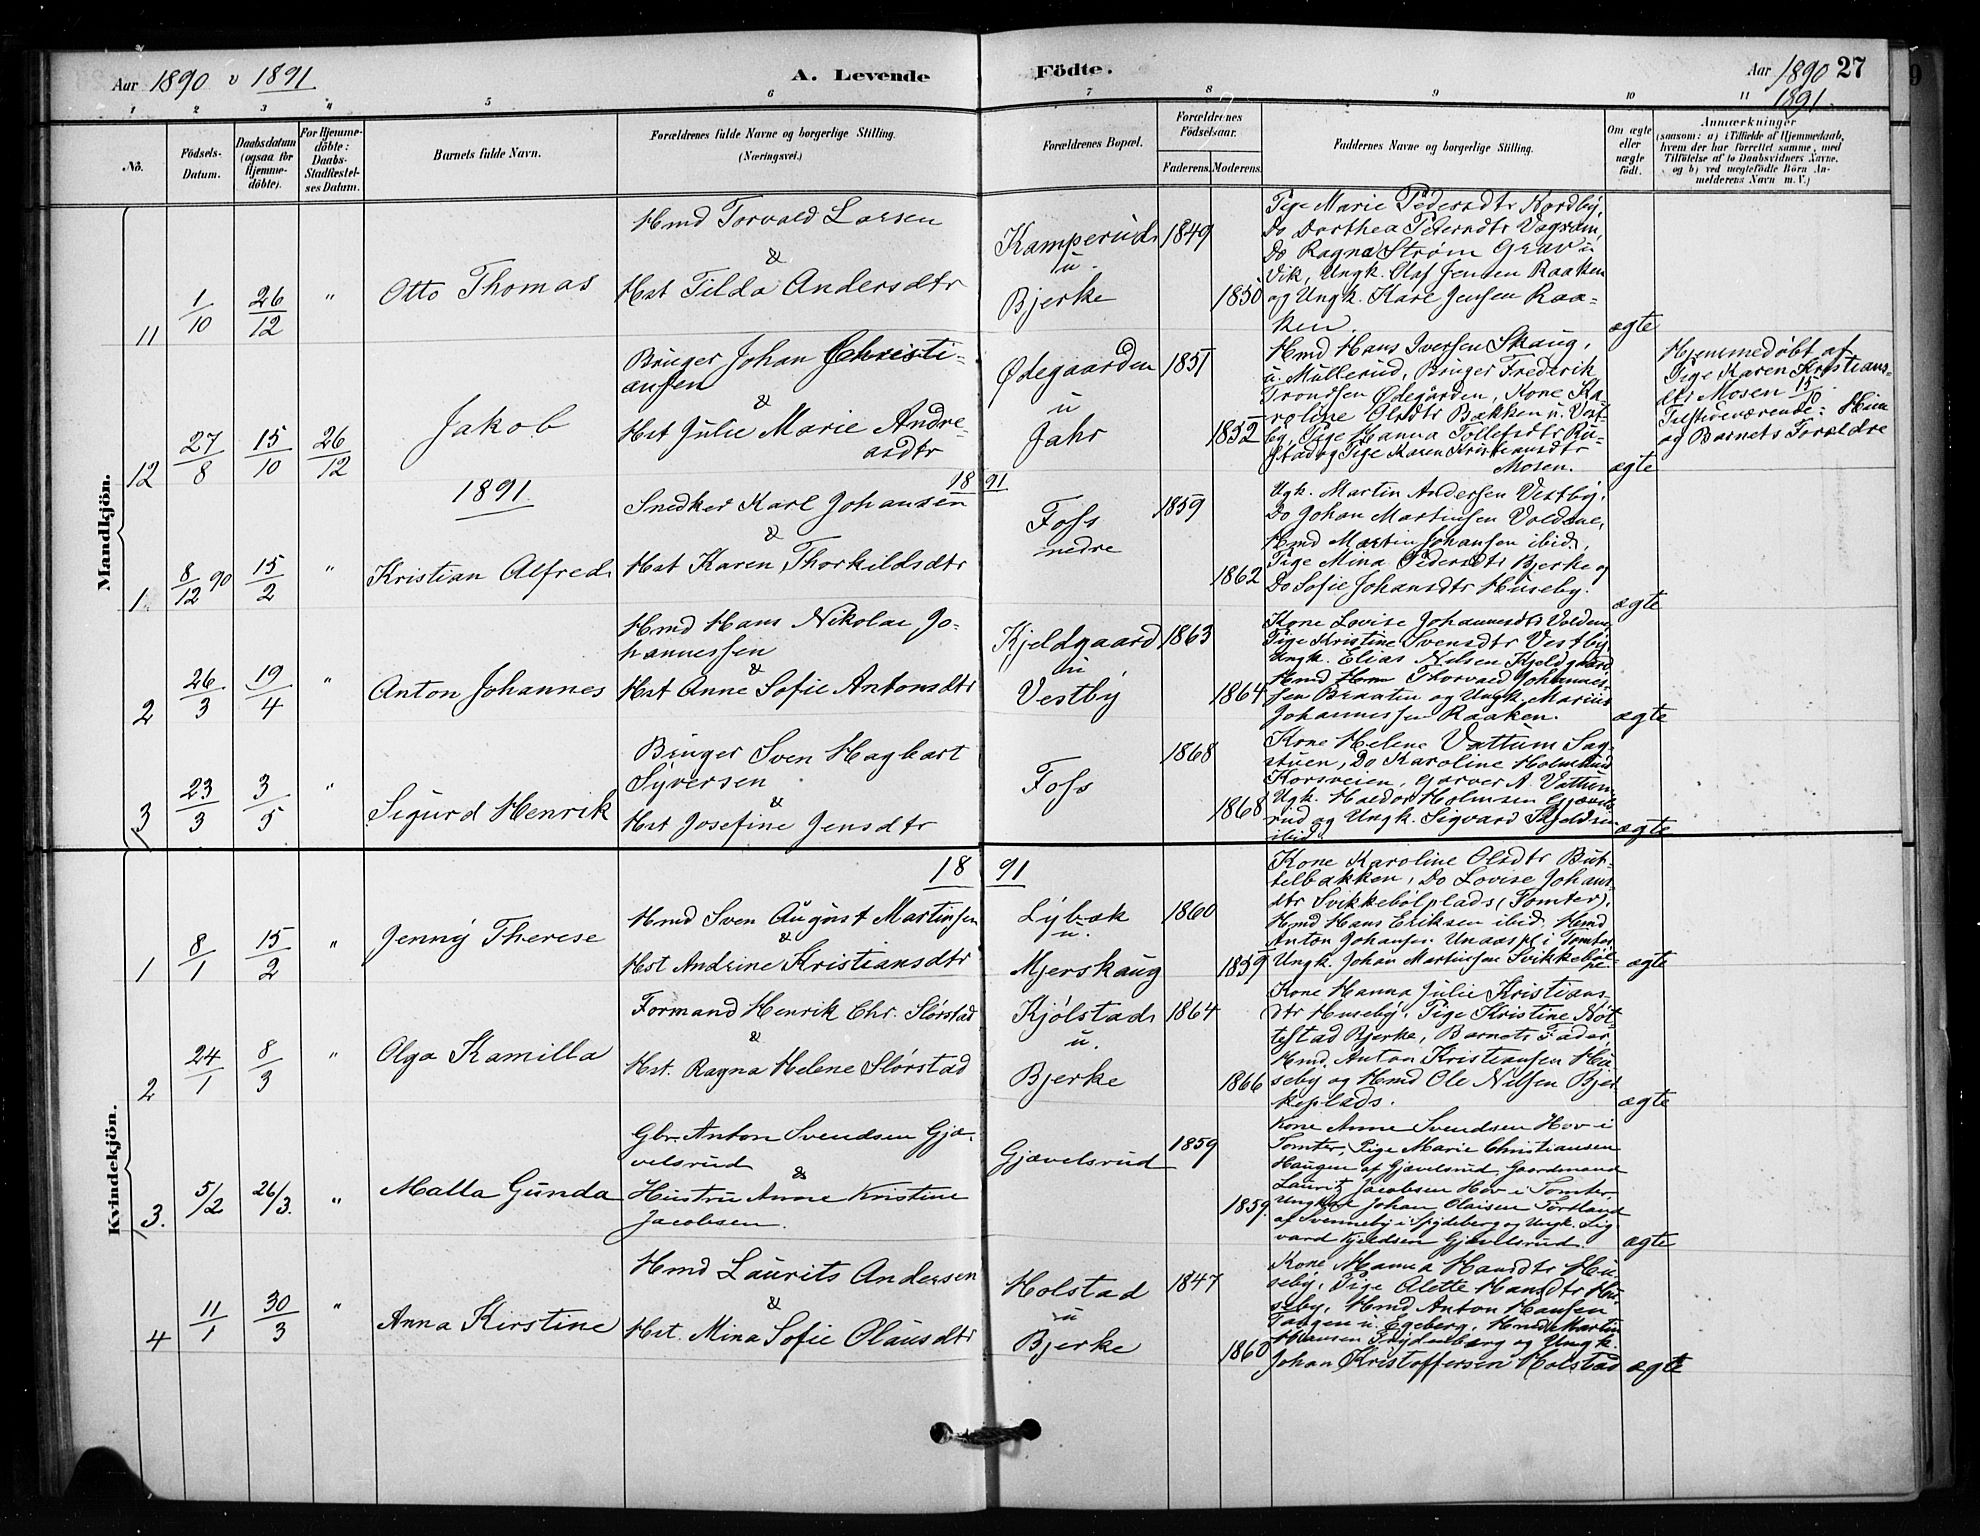 Aar 1890 o 1891
A. Levende
Födte.
Aar 1890 27
1891
1 2 3 4 5 6 7 8 9 10 11
No.
Födsels-
Datum.
Daabsdatum
(ogsaa for
Hjemme-
döbte).
For Hjemme-
döbte:
Daabs-
Stadfæstel-
ses Datum.
Barnets fulde Navn.
Forældrenes fulde Navne og borgerlige Stilling.
(Næringsvei.)
Forældrenes Bopæl.
Forældrenes
Födselsaar.
Faderens. Moderens.
Faddernes Navne og borgerlige Stilling.
Om ægte
eller
uægte
födt.
Anmærkninger
(saasom: a) i Tilfælde af Hjemmedaab,
hvem der har forrettet samme, med
Tilföielse af to Daabsvidners Navne,
og b) ved uægtefödte Börn An-
melderens Navn m. V.)
Mandkjön.
11
1/10
26/12
"
Otto Thomas
Hmd Torvald Larsen
&
Hst Tilda Andersdtr
Kamperud
u.
Bjerke
1849
1850
Tige Marie Pedersdtr Nordby,
Do Dorthea Petersdtr Vagram,
Do Ragna Strøm Grav u
Vik, Ungk. Olaf Jensen Raaken
og Ungk. Kare Jensen Raa-
ken.
ægte
12
27/8
15/10
26/12
Jakob
Bruger Johan Christi-
ansen
&
Hst Julie Marie Andre-
asdtr
Ødegaarden
u
Jahr
1851
1852
Hmd Hans Iversen Skaug,
u. Müllerud, Bruger Frederik
Trondsen Ødegården, Kone Ka-
roline Olsdtr Bakken u. Vest-
by, Pige Hanna Tollefsdtr Ru-
stad og Pige Karen Kristiansdtr
Mosen.
ægte
Hjemmedøbt af
Pige Karen Kristians-
dtr Mosen 15/10.
Tilstedeværende: Hun
og Barnets Forældre
1891
18 91
1
8/12 90
15/2
"
Kristian Alfred
Snedker Karl Johansen
&
Hst Karen Thorkildsdtr
Foss
nedre
1859
1862
Ugk. Martin Andersen Vestby,
Do Johan Martinsen Voldene,
Hmd Morten Johansen ibid,
Pige Mina Pedersdtr Bjerke og
Do Sofie Johansdtr Huseby.
ægte
2
26/3
19/4
"
Anton Johannes
Hmd Hans Nikolai Jo-
hannessen
&
Hst Anne Sofie Antonsdtr
Kjeldgaard
u
Vestby
1863
1864
Kone Lovise Johannesdtr Volden,
Pige Kristine Svensdtr Vestby
Ungk. Elias Nilsen Kjeldgaard
Hmd Thorvald Johannes-
sen Braaten og Ungk. Marius
Johannessen Raaken.
ægte
3
23/3
3/5
"
Sigurd Henrik
Bruger Sven Hagbart
Syversen
&
Hst Josefine Jensdtr
Foss
1868
1868
Kone Helene Vattum Sag-
stuen, Do Karoline Holmsund
Korsveien, Garver A. Vattum
Ugk. Haldor Holmsen Gjævels-
rud og Ungk. Sigvard Kjeldsen
ibid.
ægte
Kvindekjön.
18 91
1
8/1
15/2
"
Jenny Therese
Hmd Sven August Martinsen
&
Hst Andrine Kristiansdtr
Lybæk
u.
Mjerskaug
1860
1859
Kone Karoline Olsdtr But-
telbakken, Do Lovise Johans-
dtr Svikkebølplads (Tomter).
Hmd Hans Eriksen ibid, Hmd
Anton Johansen Unaas pl i Tomter
Ungk. Johan Martinsen Svikkebøl-
pl.
ægte
2
24/1
8/3
"
Olga Kamilla
Formand Henrik Chr. Slørstad
&
Hst. Ragna Helene Slørstad
Kjølstad
u.
Bjerke
1864
1866
Kone Hanna Julie Kristians-
dtr Huseby, Pige Kristine Nøt-
testad Bjerke, Barnets Fader,
Hmd. Anton Kristiansen Hu-
seby og Hmd Ole Nilsen Bjer-
keplads.
ægte
3.
5/2
26/3.
"
Malla Gunda
Gbr. Anton Svendsen Gjæ-
velsrud
&
Hustru Anne Kristine
Jacobsen.
Gjævelsrud
1859
1859.
Kone Anne Svendsen Hov i
Tomter, Pige Marie Christiansen
Haugen af Gjævelsrud, Gaardmand
Laurits Jacobsen Hov i Tomter,
Ungkarl Johan Olaisen Torsland
af Svenneby i Spydeberg og Ungk. Sig-
vard Kjeldsen Gjævelsrud.
ægte
4
11/1
30/3
"
Anna Kirstine
Hmd Laurits Andersen
&
Hst. Mina Sofie Olausdtr
Holstad
u
Bjerke
1847
1860
Kone Hanna Hansdtr Hu-
seby, Pige Alette Hansdtr Hu-
seby, Hmd Anton Hansen
Tangen u. Egeberg, Hmd Martin
Hansen Frydenberg og Ungk.
Johan Kristoffersen Holstad
ægte